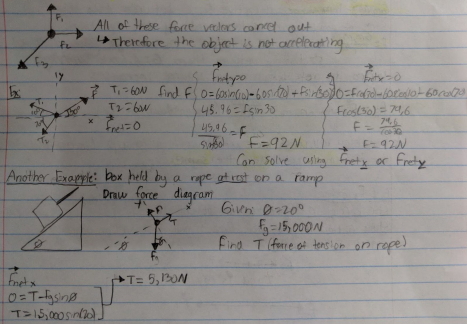 F₁
F₂
F₃
All of these force vectors cancel out
↳ Therefore the object is not accelerating
Ex
y
x
T₁
T₂
F
30°
T₁=60N
T₂=60N
Fnet=0
find F
Fnety=0
0=60sin(10)-60sin(70)+Fsin(30)
45.96=Fsin30
45.96/sin30=F
F=92N
Fnetx=0
Fcos(30)=79.6
F=79.6/cos30
F=92N
Can solve using Fnetx or Fnety
Another Example: box held by a rope at rest on a ramp
Draw force diagram
θ
T
θ
Given: θ=20°
Fg=15,000N
Find T (force of tension on rope)
Fnetx
0=T-Fgsinθ
T=15,000sin(20)
→T=5,130N